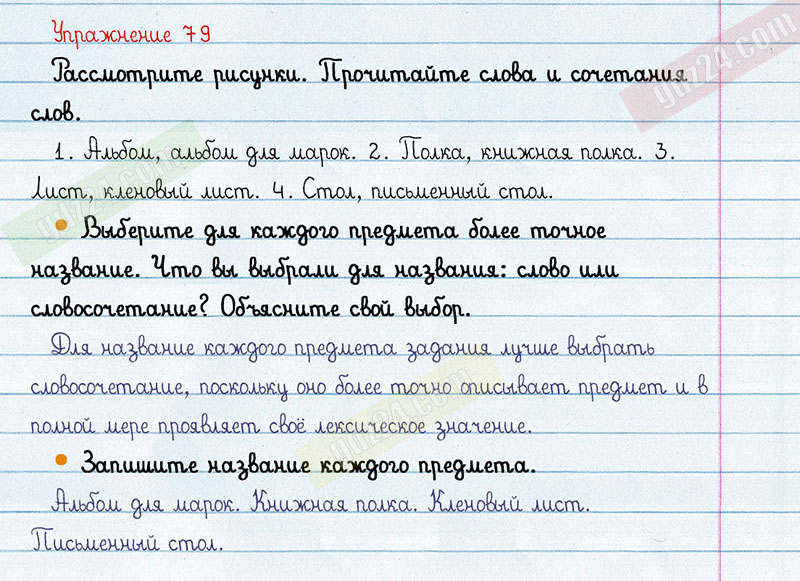 Упражнение 79
Рассмотрите рисунки. Прочитайте слова и сочетания
слов.
1. Альбом, альбом для марок. 2. Полка, книжная полка. 3.
Лист, кленовый лист. 4. Стол, письменный стол.
• Выберите для каждого предмета более точное
название. Что вы выбрали для названия: слово или
словосочетание? Объясните свой выбор.
Для название каждого предмета задания лучше выбрать
словосочетание, поскольку оно более точно описывает предмет и в
полной мере проявляет своё лексическое значение.
• Запишите название каждого предмета.
Альбом для марок. Книжная полка. Кленовый лист.
Письменный стол.
gdz24.com
gdz24.com
gdz24.com